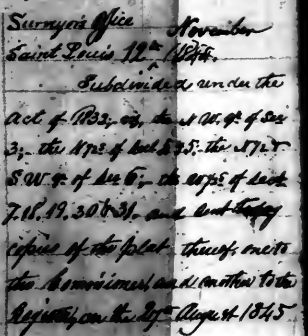 Surveyor's Office November
Saint Louis 12th, 1845.
Subdivided under the
Act of 1832, the N.W. qr of Sec
3; the of Sect 5; the
S.W. qr of Sec 6; the of Sect
7. 18. 19. 30 & 31. and sent
copies of the plat thereof, one to
the Commissioner and another to the
Register, on the August 1845